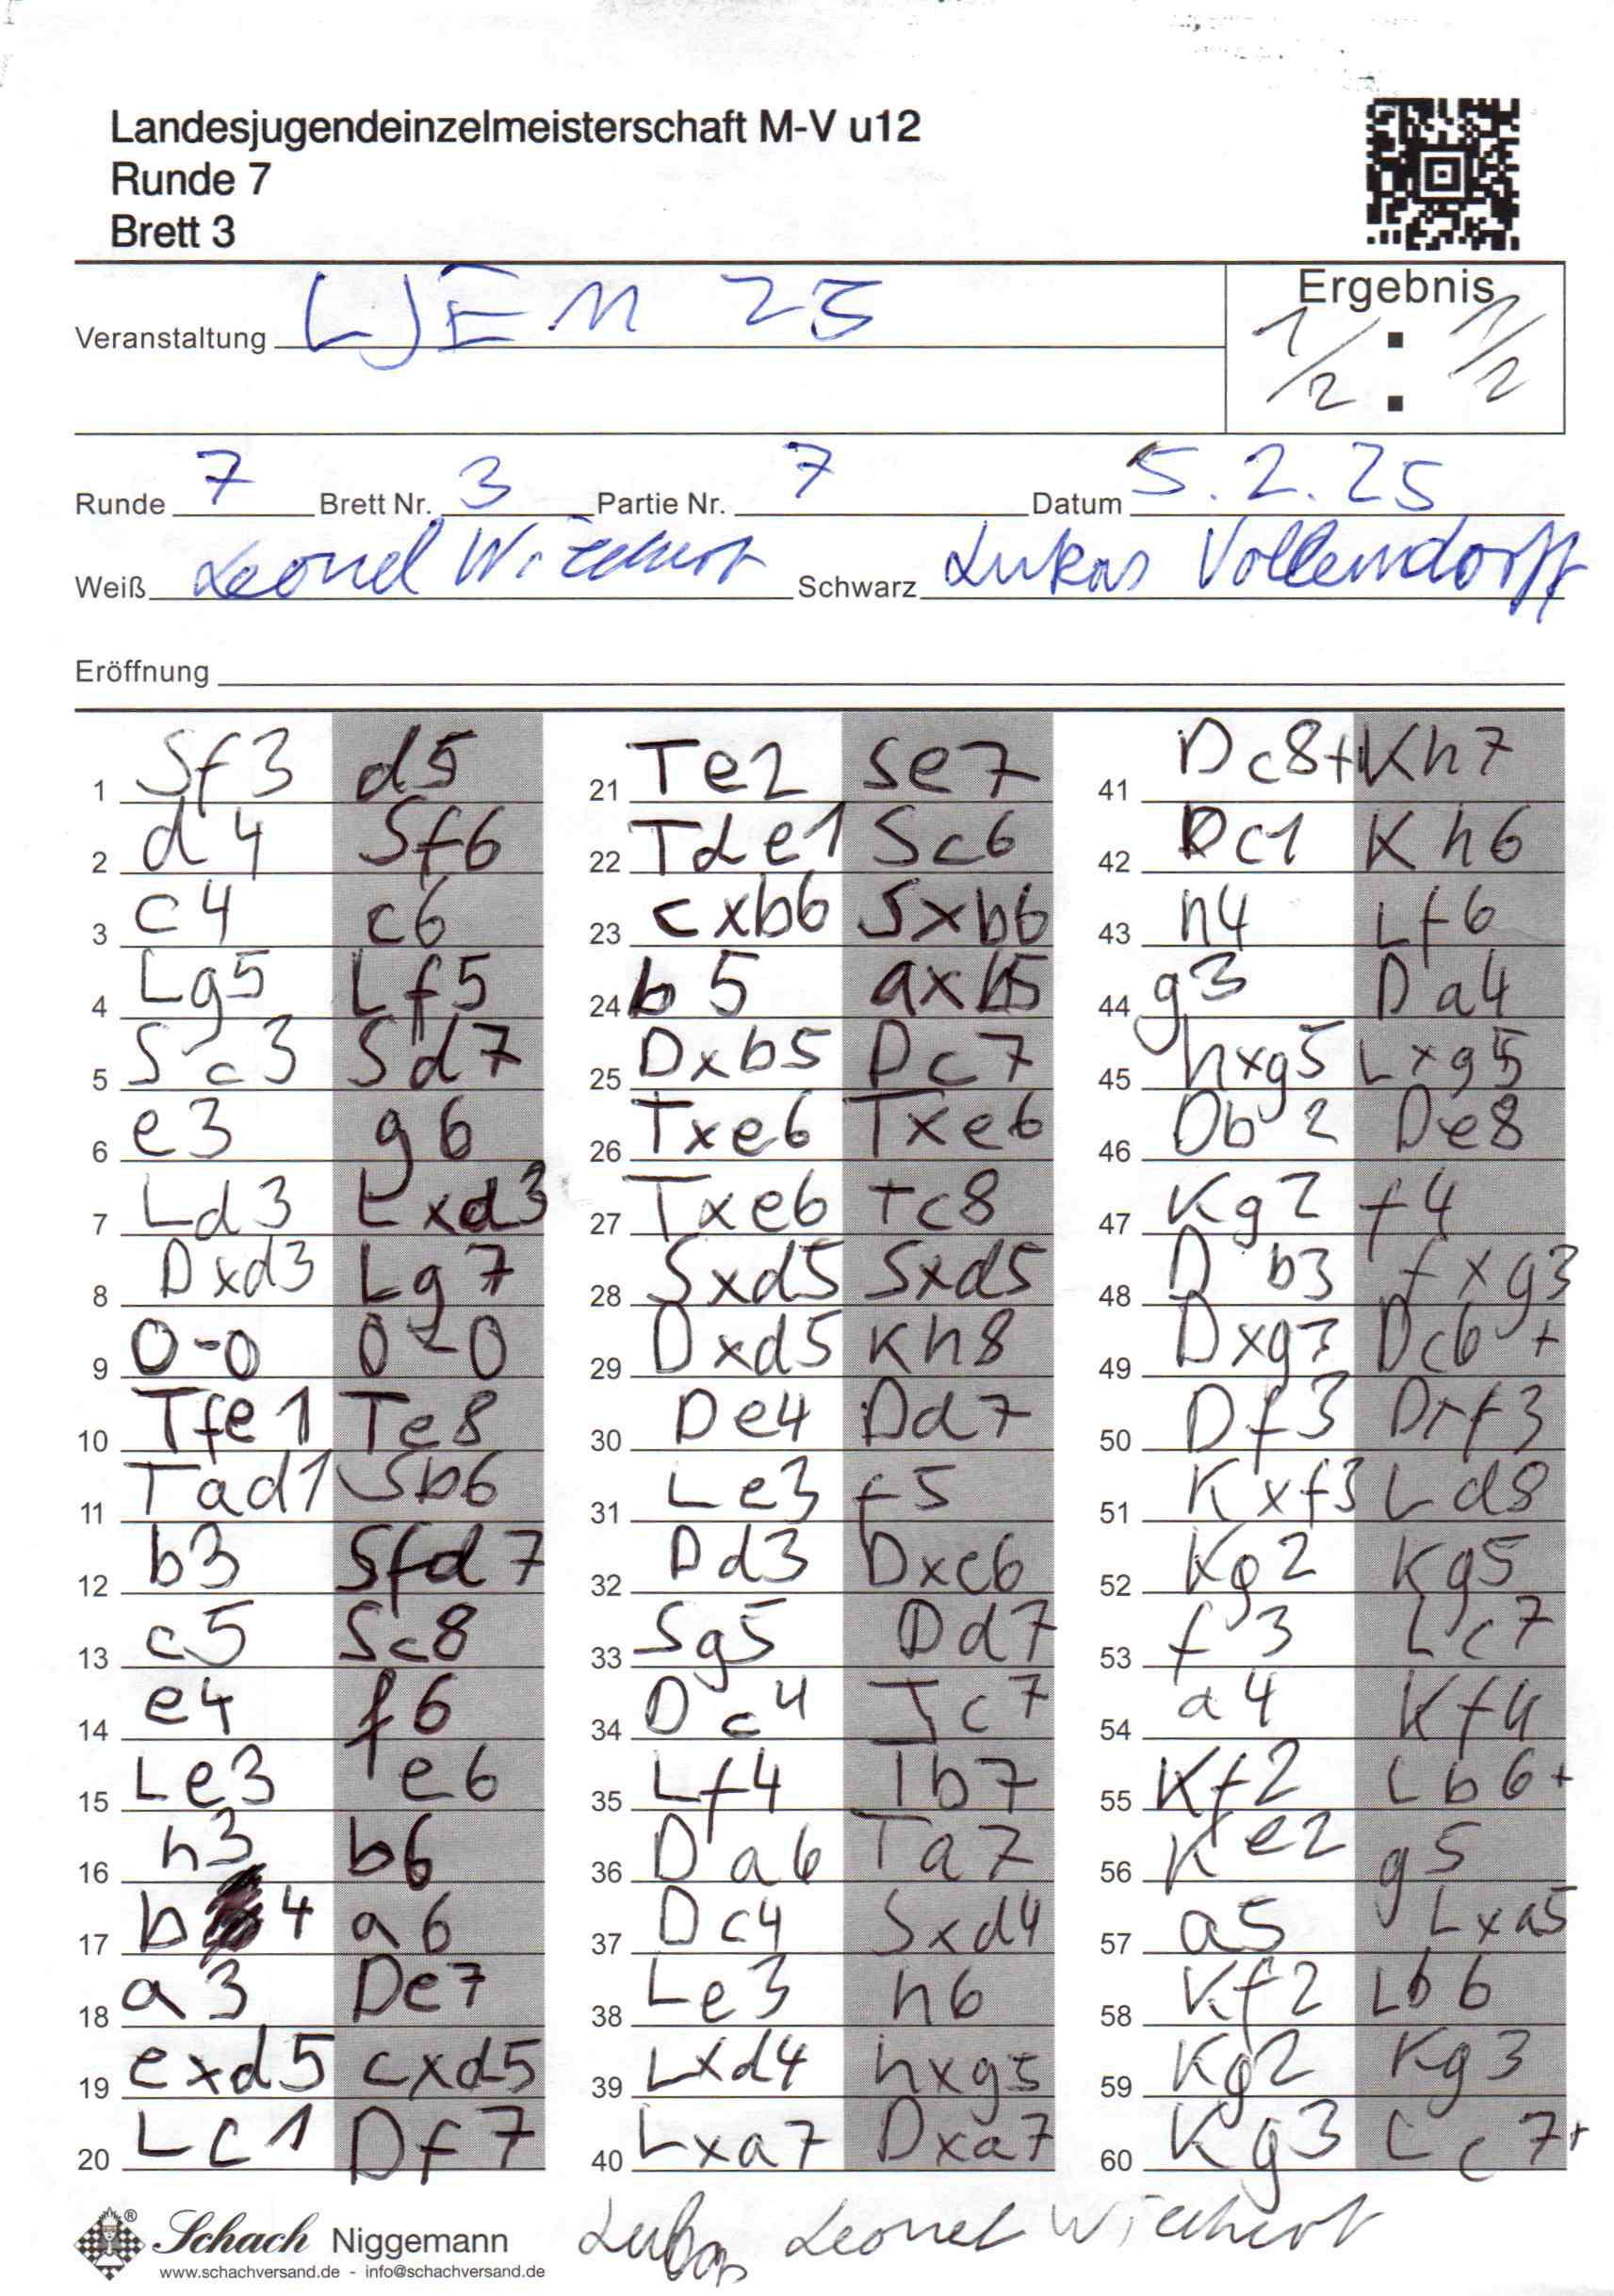 Landesjugendeinzelmeisterschaft M-V u12
Runde 7
Brett 3
Ergebnis
Veranstaltung LJEM 25
1/2 : 1/2
Runde 7 Brett Nr. 3 Partie Nr. 7 Datum 5.2.25
Weiß Leonel Wiechert Schwarz Lukas Vollendorff
Eröffnung
1 Sf3 d5 21 Te2 Se7 41 Dc8+ Kh7
2 d4 Sf6 22 Tde1 Sc6 42 Dc1 Kh6
3 c4 c6 23 cxb6 Sxb6 43 h4 Lf6
4 Lg5 Lf5 24 b5 axb5 44 g3 Da4
5 Sc3 Sd7 25 Dxb5 Dc7 45 hxg5 Lxg5
6 e3 g6 26 Txe6 Txe6 46 Db2 De8
7 Ld3 Lxd3 27 Txe6 Tc8 47 Kg2 f4
8 Dxd3 Lg7 28 Sxd5 Sxd5 48 Db3 fxg3
9 0-0 0-0 29 Dxd5 Kh8 49 Dxg3 Dc6+
10 Tfe1 Te8 30 De4 Dd7 50 Df3 Dxf3
11 Tad1 Sb6 31 Le3 f5 51 Kxf3 Ld8
12 b3 Sfd7 32 Dd3 Dxe6 52 Kg2 Kg5
13 c5 Sc8 33 Sg5 Dd7 53 f3 Lc7
14 e4 f6 34 Dc4 Tc7 54 a4 Kf4
15 Le3 e6 35 Lf4 Tb7 55 Kf2 Lb6+
16 h3 b6 36 Da6 Ta7 56 Ke2 g5
17 b4 a6 37 Dc4 Sxd4 57 a5 Lxa5
18 a3 De7 38 Le3 h6 58 Kf2 Lb6
19 exd5 cxd5 39 Lxd4 hxg5 59 Kg2 Kg3
20 Lc1 Df7 40 Lxa7 Dxa7 60 Kg3 Lc7+
Schach Niggemann Lukas Leonel Wiechert
www.schachversand.de - info@schachversand.de